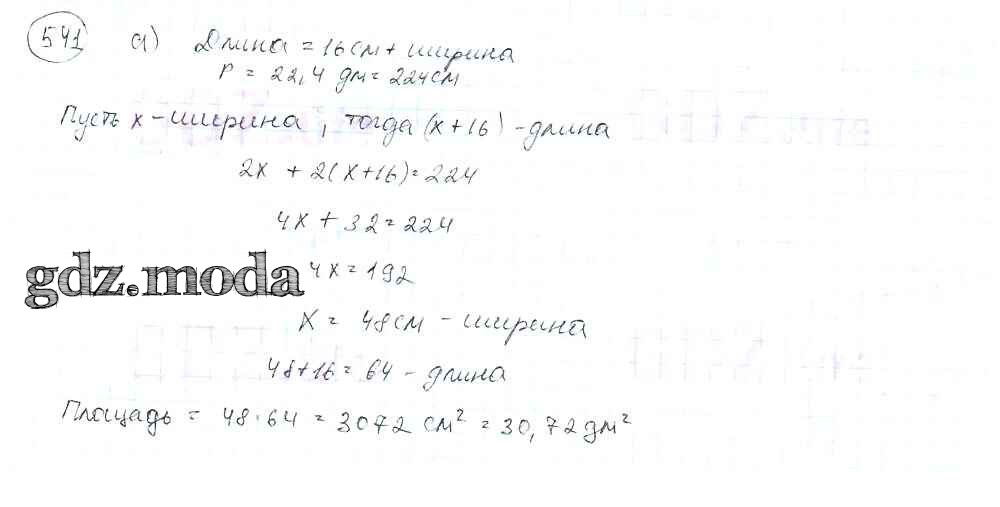 541 а) Длина = 16 см + ширина
P = 22,4 дм = 224 см
Пусть x – ширина, тогда (x + 16) – длина
2x + 2(x+16) = 224
4x + 32 = 224
gdz.moda
4x = 192
x = 48 см – ширина
48 + 16 = 64 – длина
Площадь = 48 · 64 = 3072 см² = 30,72 дм²